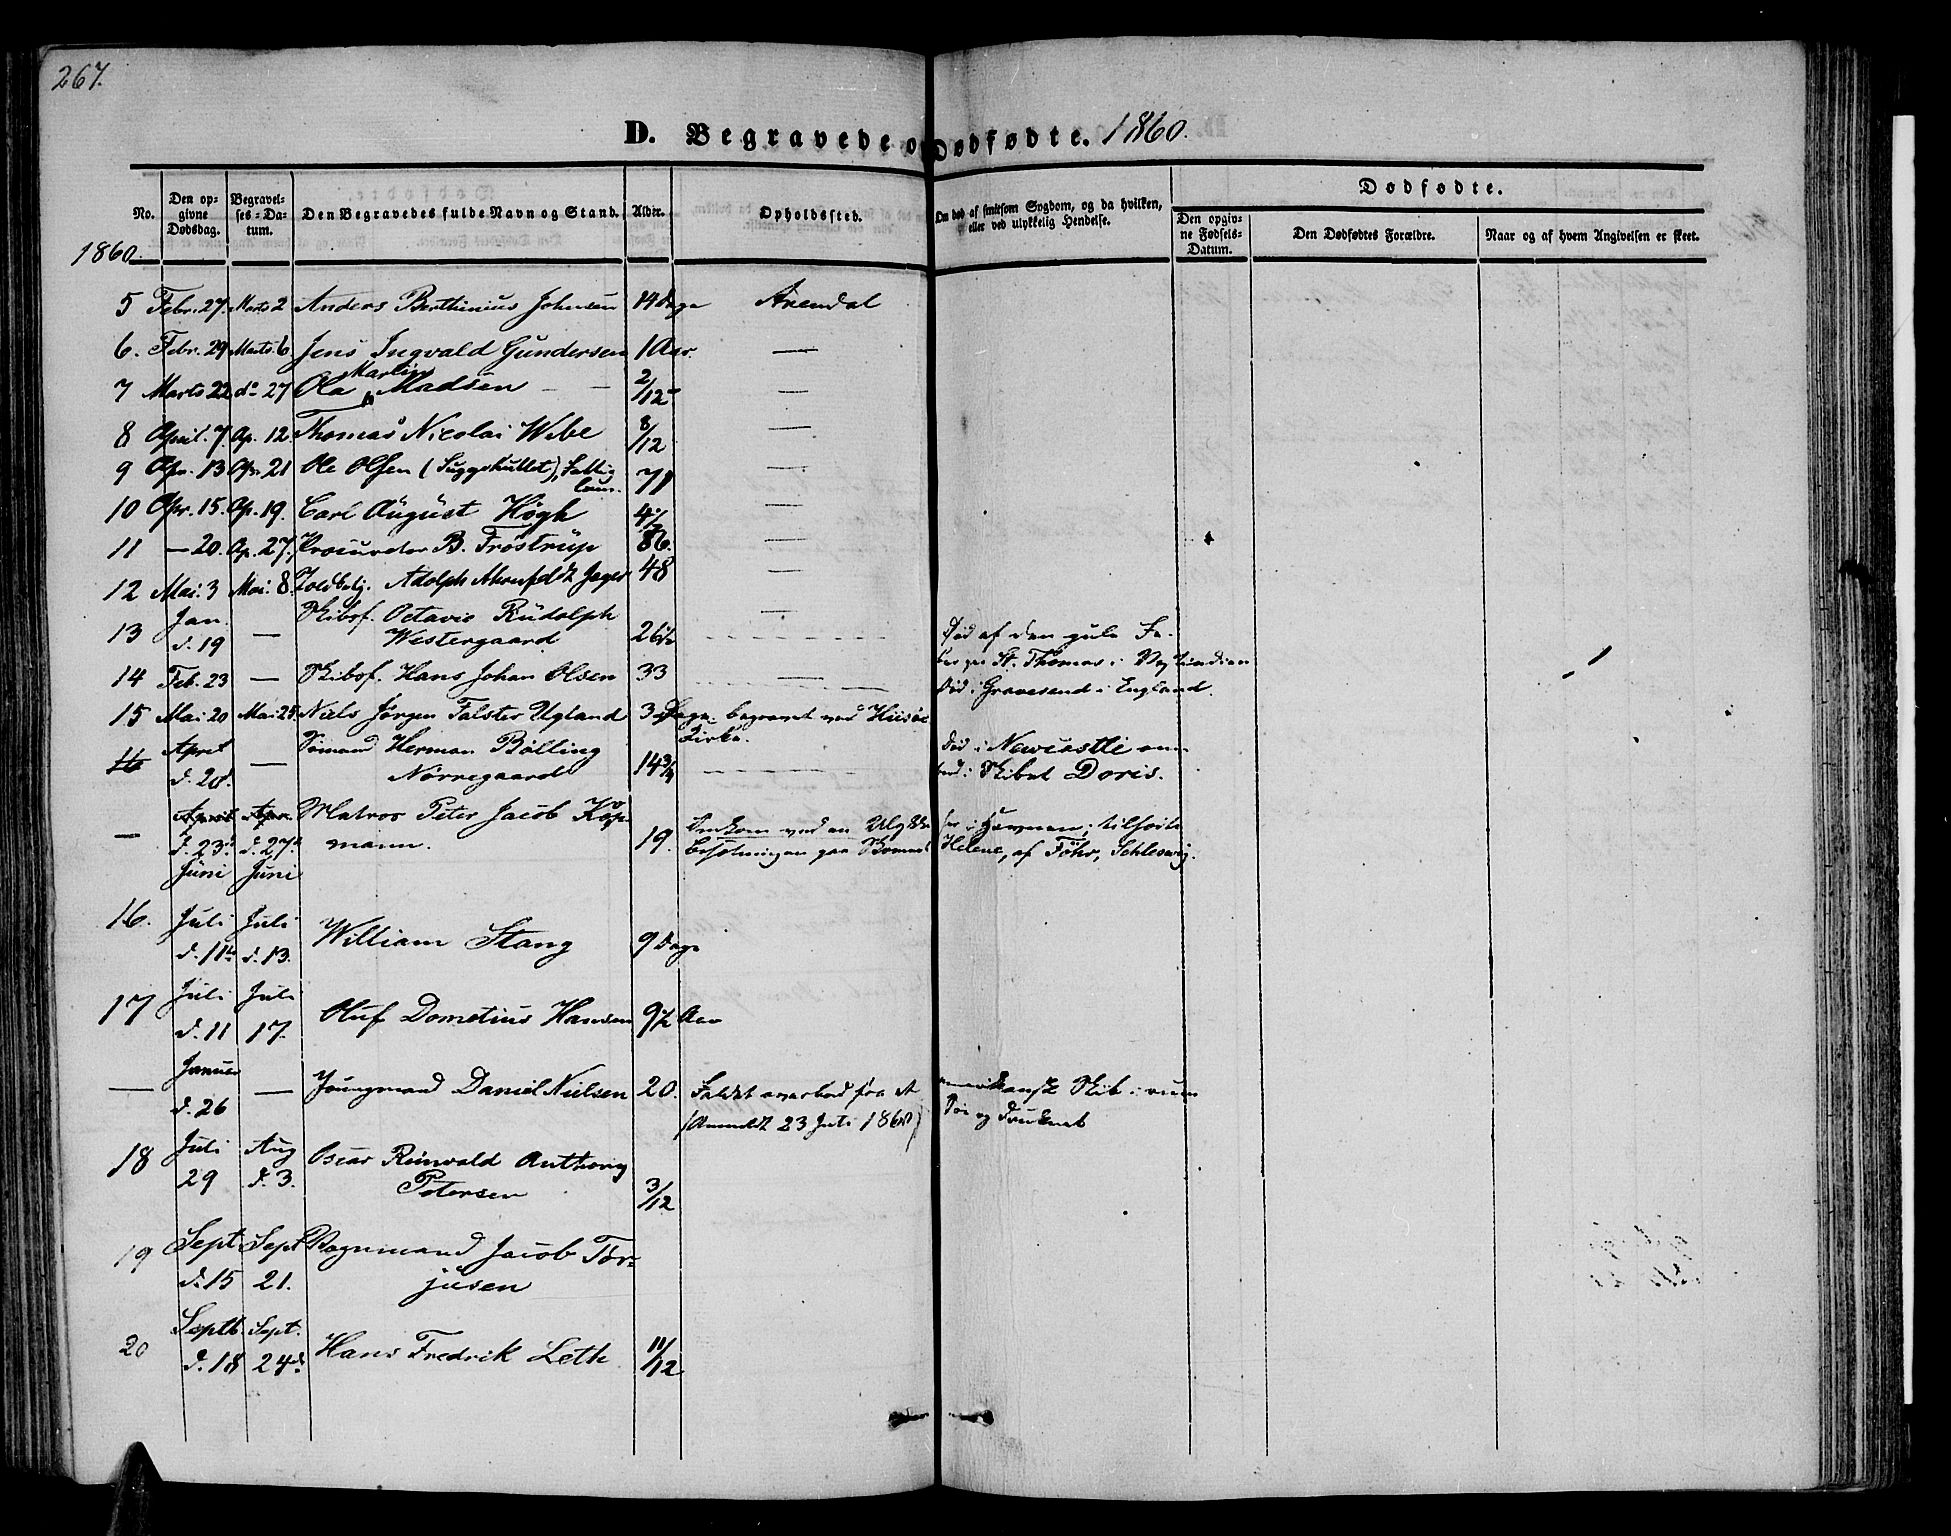 267.
D. Begravede o Dødfødte. 1860.
No.
Den opgivne Dødsdag.
Begravelses-Datum.
Den Begravedes fulde Navn og Stand.
Alder.
Opholdssted.
Om død af smitsom Sygdom, og da hvilken, eller ved ulykkelig Hendelse.
Dødfødte.
Den opgivne Fødsels-Datum.
Den Dødfødtes Forældre.
Naar og af hvem Angivelsen er skeet.
1860.
5 Febr. 27. Marts 2 Anders Berthinius Johnsen 14 Dage Arendal
6. Febr. 29 Marts 6. Jens Ingvald Gundersen 1 Aar. —
Martin
7 Marts 22 do 27 Ola Madsen — — 2/12 —
8 April. 7. Ap. 12 Thomas Nicolai Wibe 8/12 —
9 Apr. 13 Ap. 21 Ole Olsen (Suggehullet), Fattig 71 —
lem.
10 Apr. 15. Ap. 19. Carl August Høgh 4 1/2 —
11 — 20. Ap. 27. Procurator B. Frøstrup 86. —
12 Mai. 3 Mai. 8. Toldbetj. Adolph Jager 48 —
13 Jan. d. 19 — Skibsf. Octavis Rudolph —
Westergaard 26 Død af den gule Fe-
ber paa St. Thomas i Vestindien
14 Feb. 23 — Skibsf. Hans Johan Olsen 33 — Død i Gravesend i England.
15 Mai. 20 Mai 25. Niels Jørgen Falster Ugland 3 Dage. begravet ved Hisøe
Kirke.
16 April d. 28. — Sømand Herman Bølling
Nørregaard 14 3/4 Død i Newcastle om-
bord i Skibet Doris.
— April d. 23de Juni Apr. d. 27de Juni Matros Peter Jacob Kop-
mann. 19. Omkom ved en Ulykke her i Havnen; tilhørte
besætningen paa Helene, af Föhr, Schleswig.
16. Juli d. 11te Juli d. 13. William Stang 9 Dage
17 Juli d. 11 Juli 17. Oluf Dometius Hansen 9 1/2 Aar
— Januar d. 26 — Joungmand Daniel Nielsen 20. Faldet overbord fra et amerikansk Skib i rum
(Anmeldt 23 Juli 1860) Søe og druknet
18 Juli 29 Aug d. 3. Oscar Reinvald Anthony
Petersen 3/12
19 Sept d. 15 Sept 21. Bogumand Jacob Tor-
jusen
20 Septb. d. 18 Sept. 24de Hans Fredrik Leth 11/12